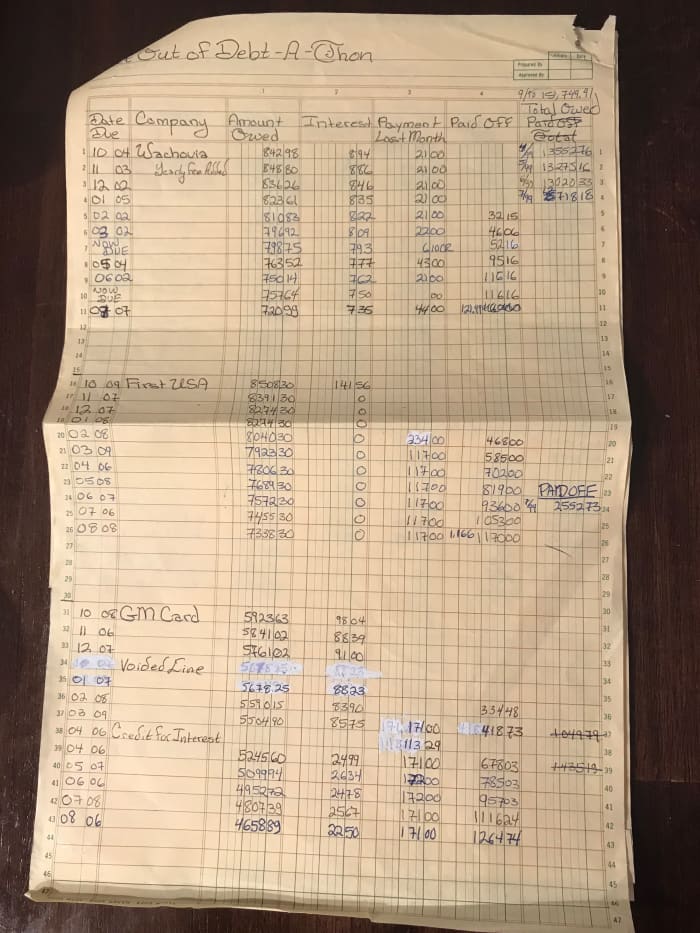 Out of Debt-A-Thon
Prepared By
Approved By
Initials Date
1 2 3 4
Date Due Company Amount Owed Interest Payment Last Month Paid Off Total Owed
1 10 04 Wachovia 842 98 8 94 21 00 1
2 11 03 Yearly Fee Added 848 80 8 86 21 00 13275 16 2
3 12 02 836 26 8 46 21 00 3
4 01 05 823 61 8 35 21 00 4
5 02 02 810 83 8 22 21 00 32 15 5
6 03 02 796 92 8 09 22 00 46 06 6
7 NOW DUE 798 75 7 93 52 16 7
8 05 04 763 52 7 77 43 00 95 16 8
9 06 02 750 14 7 62 21 00 116 16 9
10 NOW DUE 757 64 7 50 00 116 16 10
11 07 07 720 99 7 35 44 00 11
12
13
14
15
16 10 09 First USA 8508 30 141 56 16
17 11 07 8391 30 0 17
18 12 07 8274 30 0 18
19 01 08 8274 30 0 19
20 02 08 8040 30 0 234 00 468 00 20
21 03 09 7923 30 0 117 00 585 00 21
22 04 06 7806 30 0 117 00 702 00 22
23 05 08 7689 30 0 117 00 819 00 PAID OFF 23
24 06 07 7572 30 0 117 00 936 00 2552 73 24
25 07 06 7455 30 0 117 00 1053 00 25
26 08 08 7338 30 0 117 00 1,166 1170 00 26
27
28
29
30
31 10 08 GM Card 5923 63 98 04 31
32 11 06 5841 02 88 39 32
33 12 07 5761 02 91 00 33
34 Voided Line 34
35 01 07 5678 25 88 23 35
36 02 08 5590 15 83 90 334 48 36
37 03 09 5504 90 85 75 171 00 418 73 1049 79 37
38 04 06 Credit for Interest 113 29
39 04 06 5245 60 24 99 171 00 678 03 1435 19 39
40 05 07 5099 94 26 34 172 00 785 03 40
41 06 06 4952 72 24 78 172 00 957 03 41
42 07 08 4807 39 25 67 171 00 1116 24 42
43 08 06 4658 89 22 50 171 00 1264 74 43
44
45
46
47